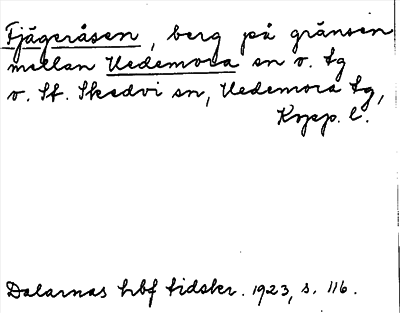 Fjägeråsen, berg på gränsen
mellan Hedemora sn o. tg
o. St. Skedvi sn, Hedemora tg,
Kopp. l.
Dalarnas hbf tidskr. 1923, s. 116.